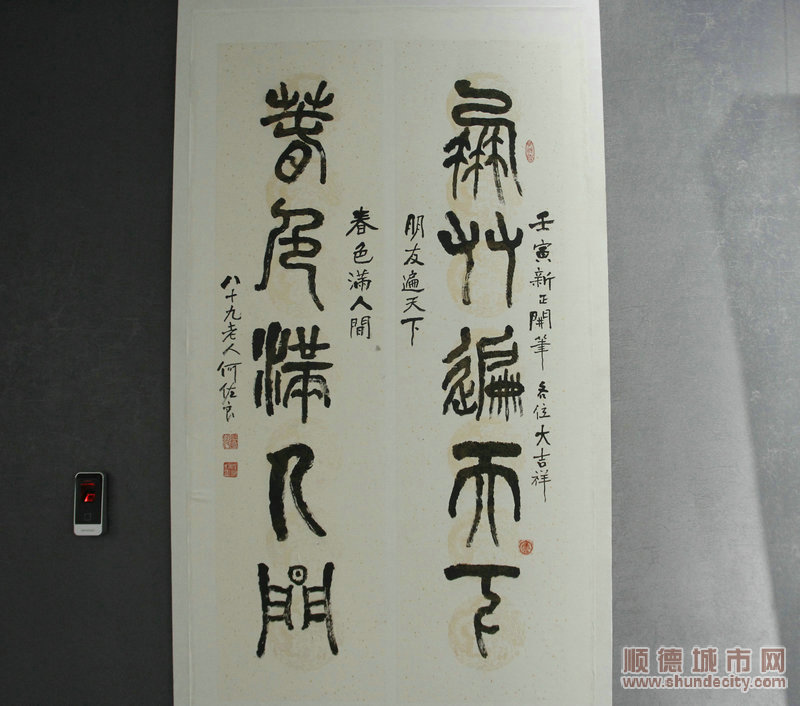 壬寅新正開筆 各位大吉祥
朋友遍天下
朋友遍天下
春色滿人間
春色滿人間
八十九老人何佐良
顺德城市网
www.shundecity.com